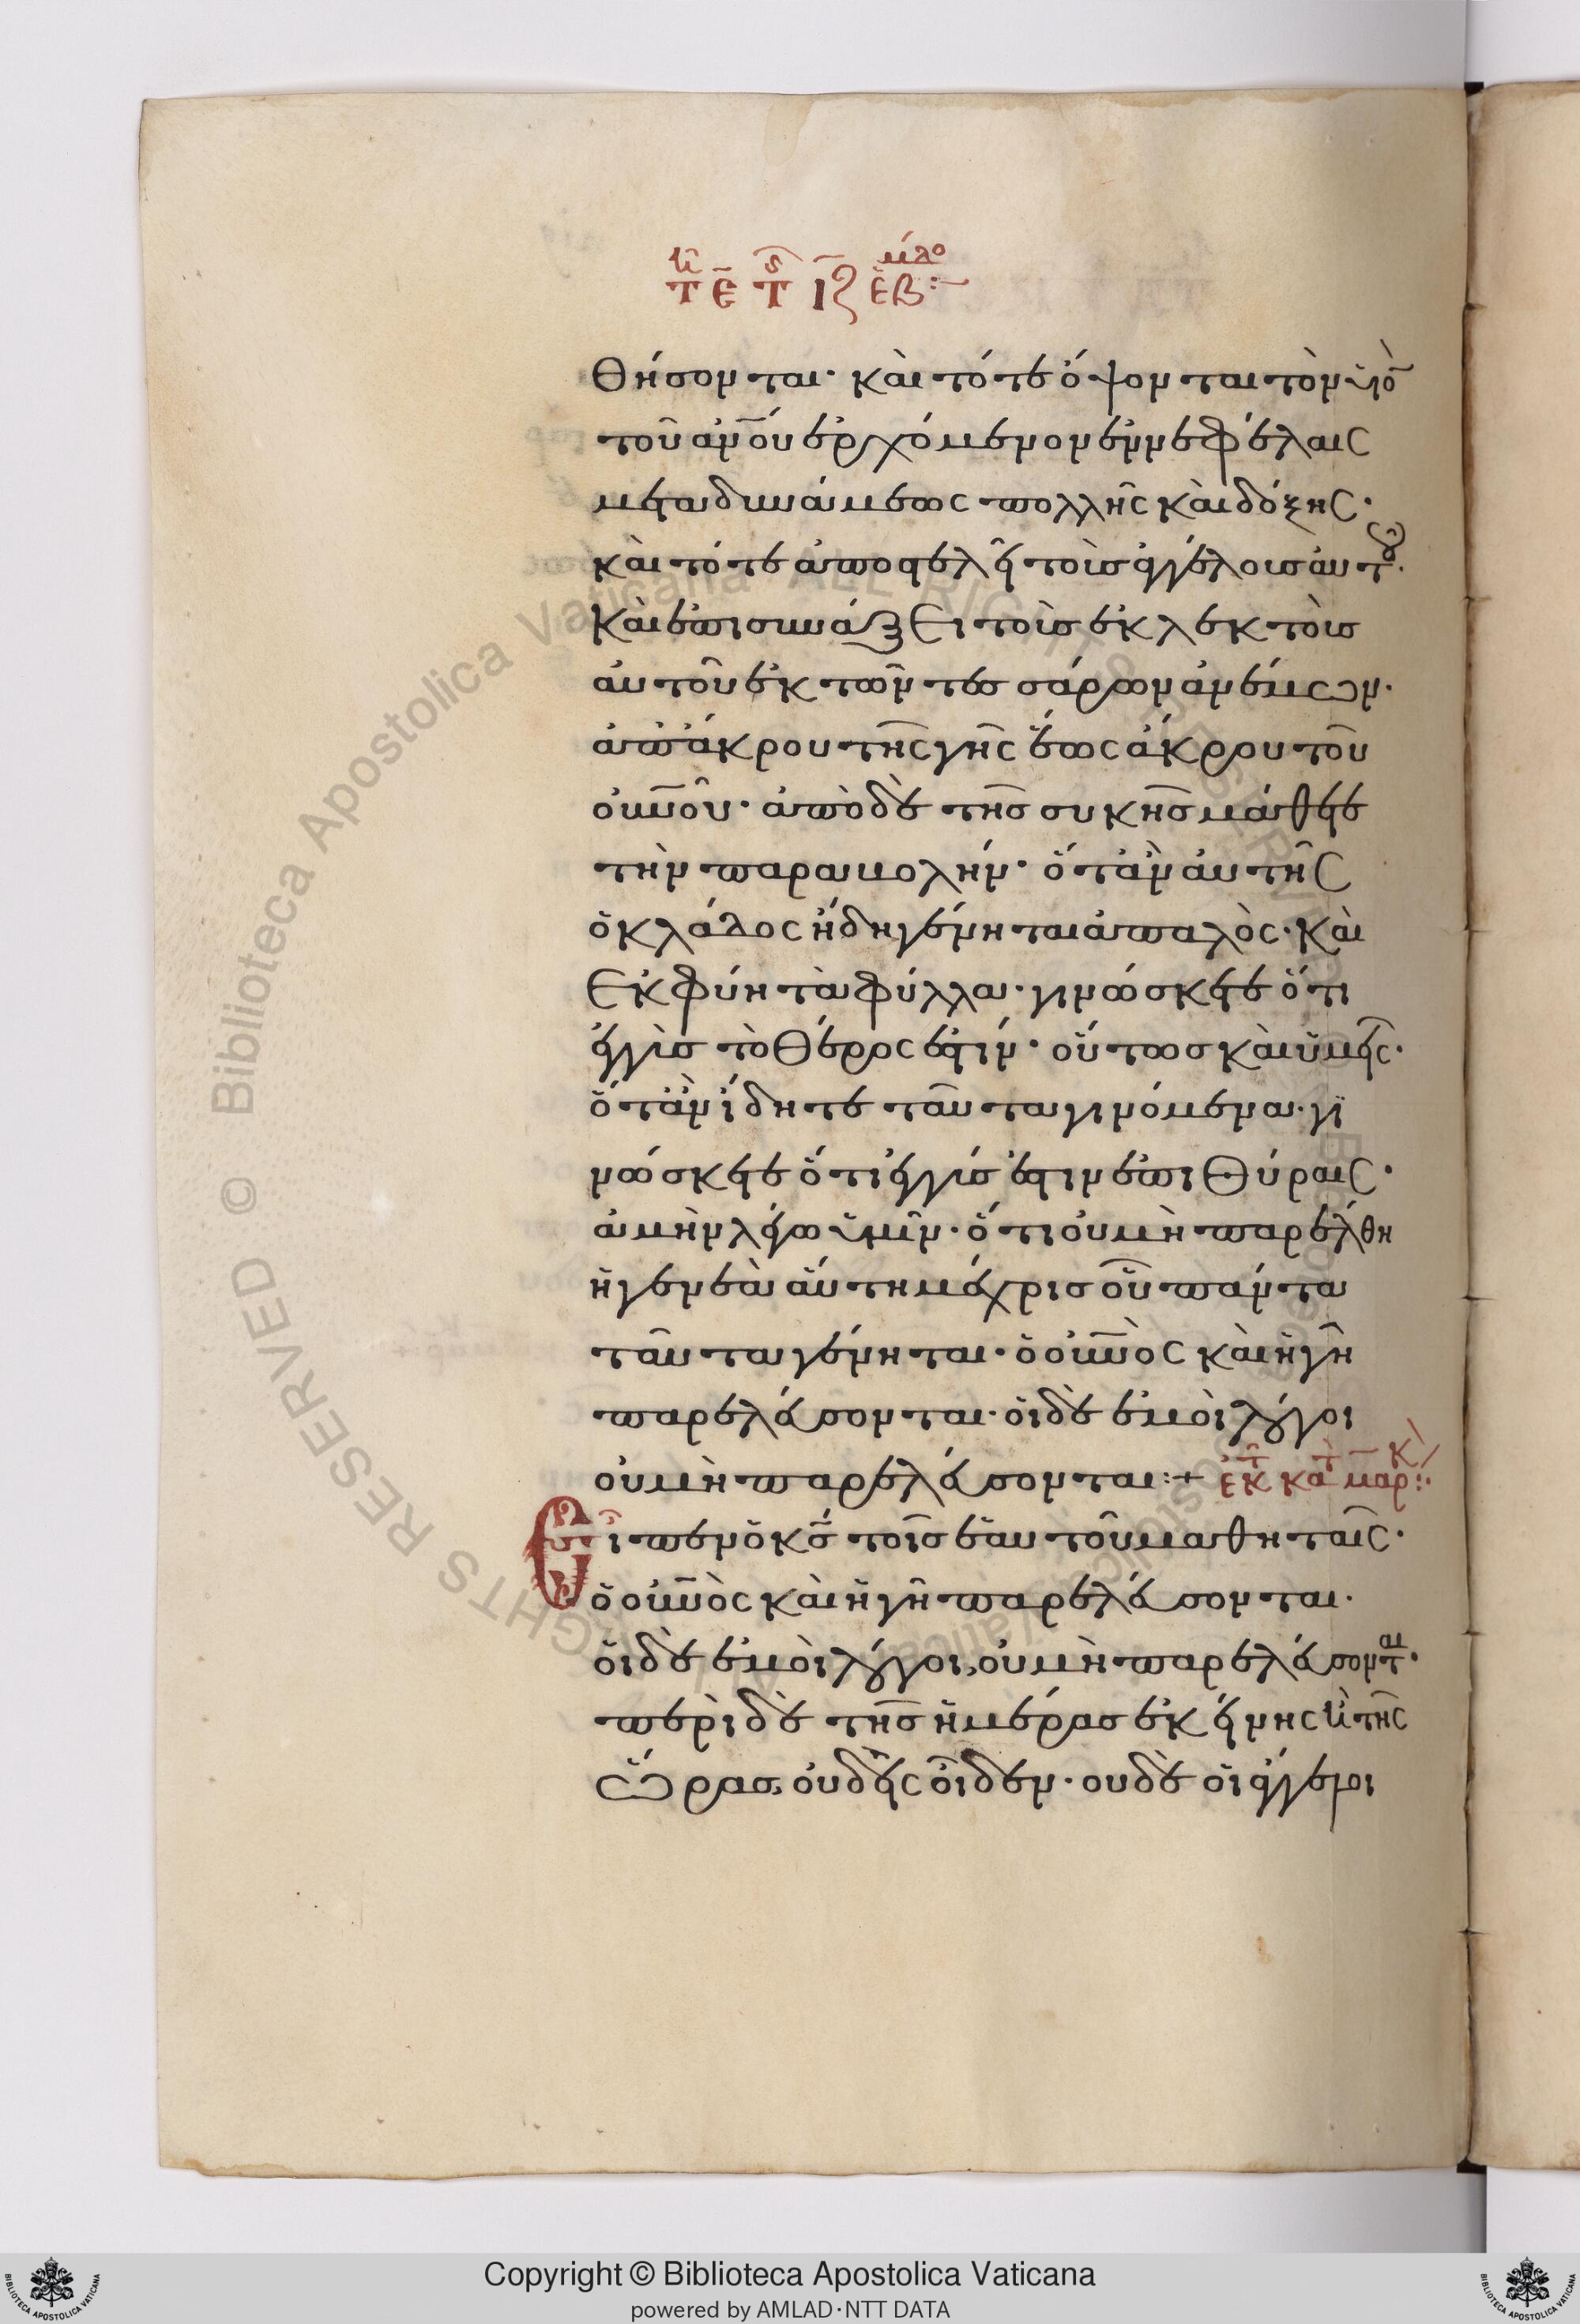 τῆ ε̄ τῆς ῑζ ἑβδομά:
θήσονται· καὶ τότε ὄψονται τὸν υἱὸ
τοῦ ἀν̅ου ἐρχόμενον ἐν νεφέλαις
μετα δυνάμεως πολλῆς καὶ δόξης·
καὶ τότε ἀποστελεῖ τοὺσ ἀγγέλουσ αὐτοῦ·
καὶ ἐπισυνάξει τοὺσ ἐκλεκτοὺσ
αὐτοῦ ἐκ τῶν τεσσάρων ἀνέμων·
ἀπ' ἄκρου τῆς γῆς ἕως ἄκρου τοῦ
οὐν̅οῦ· ἀπὸ δὲ τῆσ συκῆσ μάθετε
τὴν παραβολήν· ὅτἂν αὐτῆς
ὁ κλάδος ἤδη γένηται ἁπαλὸς· καὶ
ἐκφύη τὰ φύλλα· γινώσκετε ὅτι
ἐγγὺσ τὸ θέρος ἐστίν· οὕτωσ καὶ ὑμεῖς·
ὅτἂν ἴδητε ταῦτα γινόμενα· γι
νώσκετε ὅτι ἐγγύσ ἐστιν ἐπι θύραις·
ἀμὴν λέγω ὑμῖν· ὅτι οὐ μὴ παρέλθη
ἡ γενεὰ αὕτη μέχρισ οὗ πάντα
ταῦτα γένηται· ὁ οὐν̅ὸς καὶ ἡ γῆ
παρελεύσονται· οἱ δὲ ἐμοὶ λόγοι
οὐ μὴ παρελεύσονται:+ ἐκ τ κατ μαρκ:
Εἶπεν ὁ κς̅ τοῖσ ἑαυτοῦ μαθηταῖς·
ὁ οὐν̅ὸς καὶ ἡ γῆ παρελεύσονται·
οἱ δὲ ἐμοὶ λόγοι, οὐ μὴ παρελεύσονται·
περὶ δὲ τῆσ ἡμέρασ ἐκείνης ἢ τῆς
ὥρασ, οὐδεὶς οἶδεν· ουδὲ οἱ ἄγγελοι
Copyright © Biblioteca Apostolica Vaticana
powered by AMLAD·NTT DATA
ALL RIGHTS RESERVED © Biblioteca Apostolica Vaticana